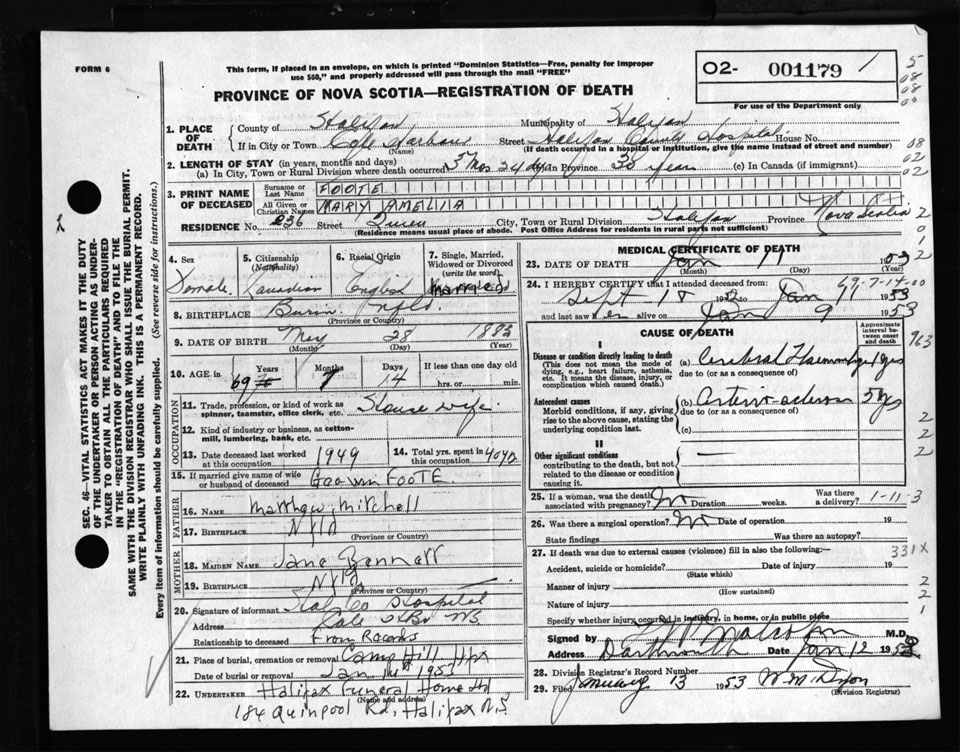 FORM 6
This form, if placed in an envelope, on which is printed "Dominion Statistics—Free, penalty for improper
use $50," and properly addressed will pass through the mail "FREE"
PROVINCE OF NOVA SCOTIA—REGISTRATION OF DEATH
O2- 001179 1
For use of the Department only
5
08
08
1. PLACE OF DEATH County of Halifax Municipality of Halifax
If in City or Town Cole Harbour (Name) Street Halifax County Hospital House No.
(If death occurred in a hospital or institution, give the name instead of street and number)
08
02
02
2. LENGTH OF STAY (in years, months and days)
(a) In City, Town or Rural Division where death occurred 3 mos 24 dys In Province 30 years (c) In Canada (if immigrant)
3. PRINT NAME OF DECEASED Surname or Last Name FOOTE
All Given or Christian Names MARY AMELIIA
RESIDENCE No. 236 Street Queen City, Town or Rural Division Halifax Province Nova Scotia
(Residence means usual place of abode. Post Office Address for residents in rural parts not sufficient)
2
0
1
2
4. Sex Female
5. Citizenship (Nationality) Canadian
6. Racial Origin English
7. Single, Married, Widowed or Divorced (write the word) Married
8. BIRTHPLACE Burin Nfld.
(Province or Country)
9. DATE OF BIRTH May 28 1883
(Month) (Day) (Year)
10. AGE 69 Years 7 Months 14 Days If less than one day old
hrs. or min.
OCCUPATION
11. Trade, profession, or kind of work as spinner, teamster, office clerk, etc. House wife
12. Kind of industry or business, as cotton-mill, lumbering, bank, etc.
13. Date deceased last worked at this occupation 1949
14. Total yrs. spent in this occupation 40 yrs
15. If married give name of wife or husband of deceased FOOTE
FATHER
16. NAME Matthew Mitchell
17. BIRTHPLACE Nfld
(Province or Country)
MOTHER
18. MAIDEN NAME Jane Bennett
19. BIRTHPLACE Nfld
(Province or Country)
20. Signature of informant Hal Co Hospital
Address Cole Hbr NS
Relationship to deceased From Records
21. Place of burial, cremation or removal Camp Hill Hfx
Date of burial or removal Jan 1953
22. UNDERTAKER Halifax Funeral Home Ltd
(Name and address)
184 Quinpool Rd, Halifax N.S.
MEDICAL CERTIFICATE OF DEATH
23. DATE OF DEATH Jan 11 1953
(Month) (Day) (Year)
24. I HEREBY CERTIFY that I attended deceased from:
Sept 18 1952 to Jan 1953
7-14-00
and last saw her alive on Jan 9 1953
CAUSE OF DEATH
Approximate interval between onset and death
963
I
Disease or condition directly leading to death
(This does not mean the mode of dying, e.g., heart failure, asthenia, etc. It means the disease, injury, or complication which caused death.)
(a) Cerebral Haemorrhage 1 yrs
due to (or as a consequence of)
Antecedent causes
Morbid conditions, if any, giving rise to the above cause, stating the underlying condition last.
(b) Arterio-sclerosis 5 yrs
due to (or as a consequence of)
(c)
II
Other significant conditions
contributing to the death, but not related to the disease or condition causing it.
2
2
2
25. If a woman, was the death associated with pregnancy? No Duration weeks. Was there a delivery?
1-11-3
26. Was there a surgical operation? No Date of operation 19
State findings Was there an autopsy?
27. If death was due to external causes (violence) fill in also the following:
331X
Accident, suicide or homicide? Date of injury 19
(State which)
Manner of injury
(How sustained)
Nature of injury
Specify whether injury occurred in industry, in home, or in public place
2
2
1
Signed by Malcolm M.D.
Address Dartmouth Date Jan 12 1953
28. Division Registrar's Record Number
29. Filed January 13 1953
(Division Registrar)
SEC. 46—VITAL STATISTICS ACT MAKES IT THE DUTY
OF THE UNDERTAKER OR PERSON ACTING AS UNDER-
TAKER TO OBTAIN ALL THE PARTICULARS REQUIRED
IN THE "REGISTRATION OF DEATH" AND TO FILE THE
SAME WITH THE DIVISION REGISTRAR WHO SHALL ISSUE THE BURIAL PERMIT.
WRITE PLAINLY WITH UNFADING INK. THIS IS A PERMANENT RECORD.
Every item of information should be carefully supplied. (See reverse side for instructions.)